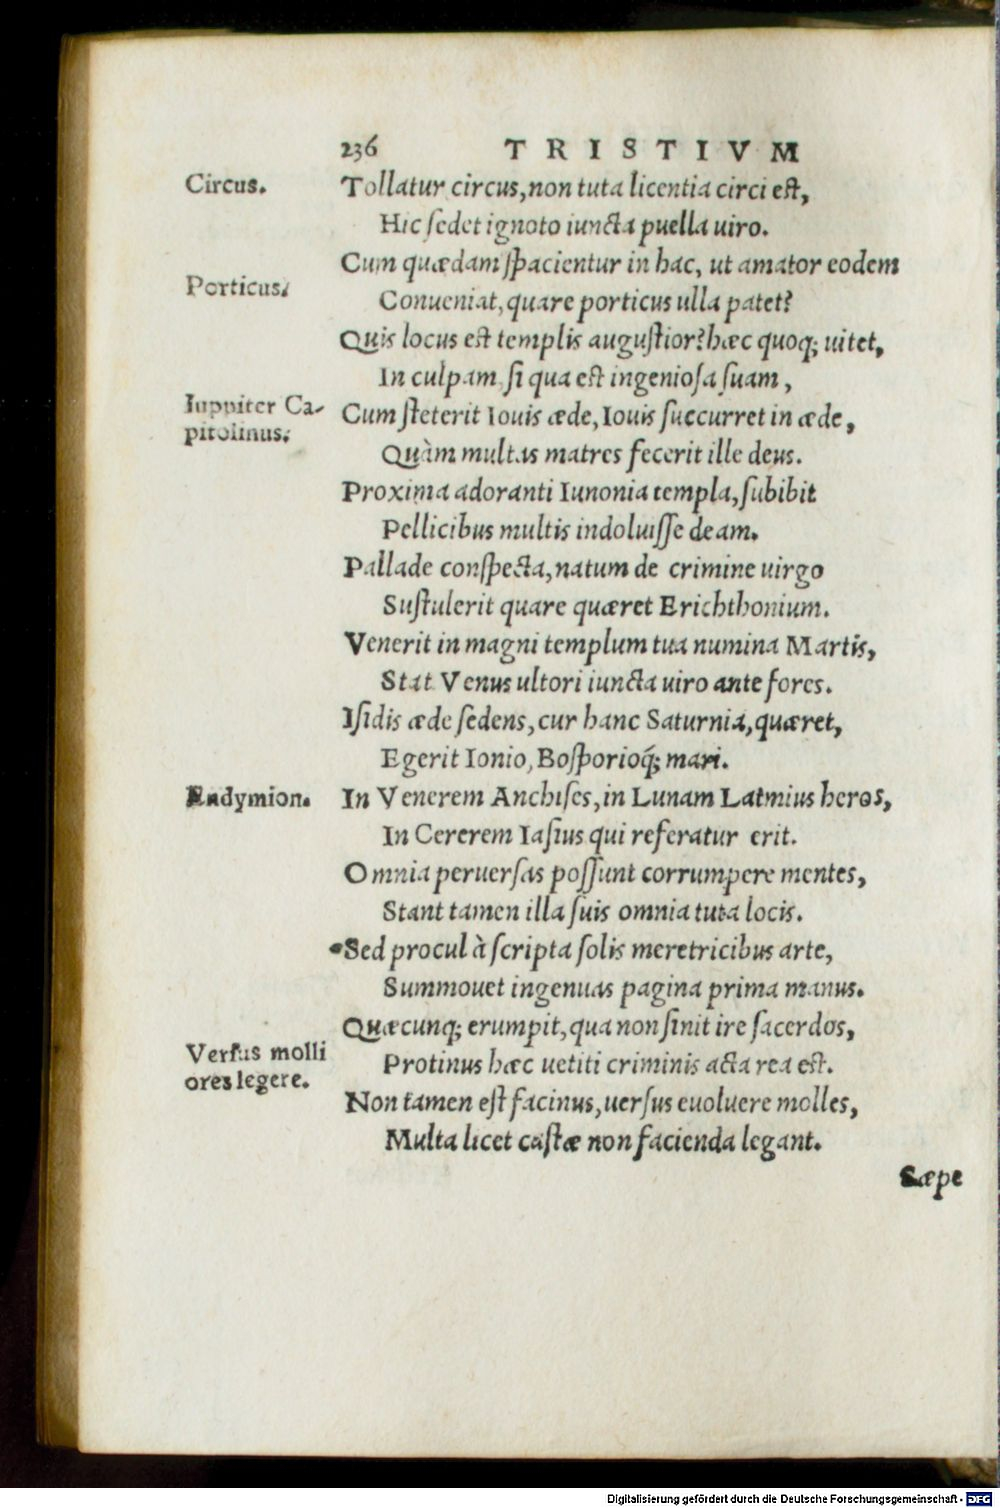 236 TRISTIVM
Circus.
Tollatur circus, non tuta licentia circi est,
Hic sedet ignoto iuncta puella uiro.
Cum quædam spacientur in hac, ut amator eodem
Porticus.
Conueniat, quare porticus ulla patet?
Quis locus est templis augustior? hæc quoq; uitet,
In culpam si qua est ingeniosa suam,
Iuppiter Ca-
pitolinus.
Cum steterit Iouis æde, Iouis succurret in æde,
Quàm multas matres fecerit ille deus.
Proxima adoranti Iunonia templa, subibit
Pellicibus multis indoluisse deam.
Pallade conspecta, natum de crimine uirgo
Sustulerit quare quæret Erichthonium.
Venerit in magni templum tua numina Martis,
Stat Venus ultori iuncta uiro ante fores.
Isidis æde sedens, cur hanc Saturnia, quæret,
Egerit Ionio, Bosporioq́; mari.
Endymion.
In Venerem Anchises, in Lunam Latmius heros,
In Cererem Iasius qui referatur erit.
Omnia peruersas possunt corrumpere mentes,
Stant tamen illa suis omnia tuta locis.
Sed procul à scripta solis meretricibus arte,
Summouet ingenuas pagina prima manus.
Quæcunq; erumpit, qua non sinit ire sacerdos,
Versus molli
ores legere.
Protinus hæc uetiti criminis acta rea est.
Non tamen est facinus, uersus euoluere molles,
Multa licet castæ non facienda legant.
Sæpe
Digitalisierung gefördert durch die Deutsche Forschungsgemeinschaft - DFG